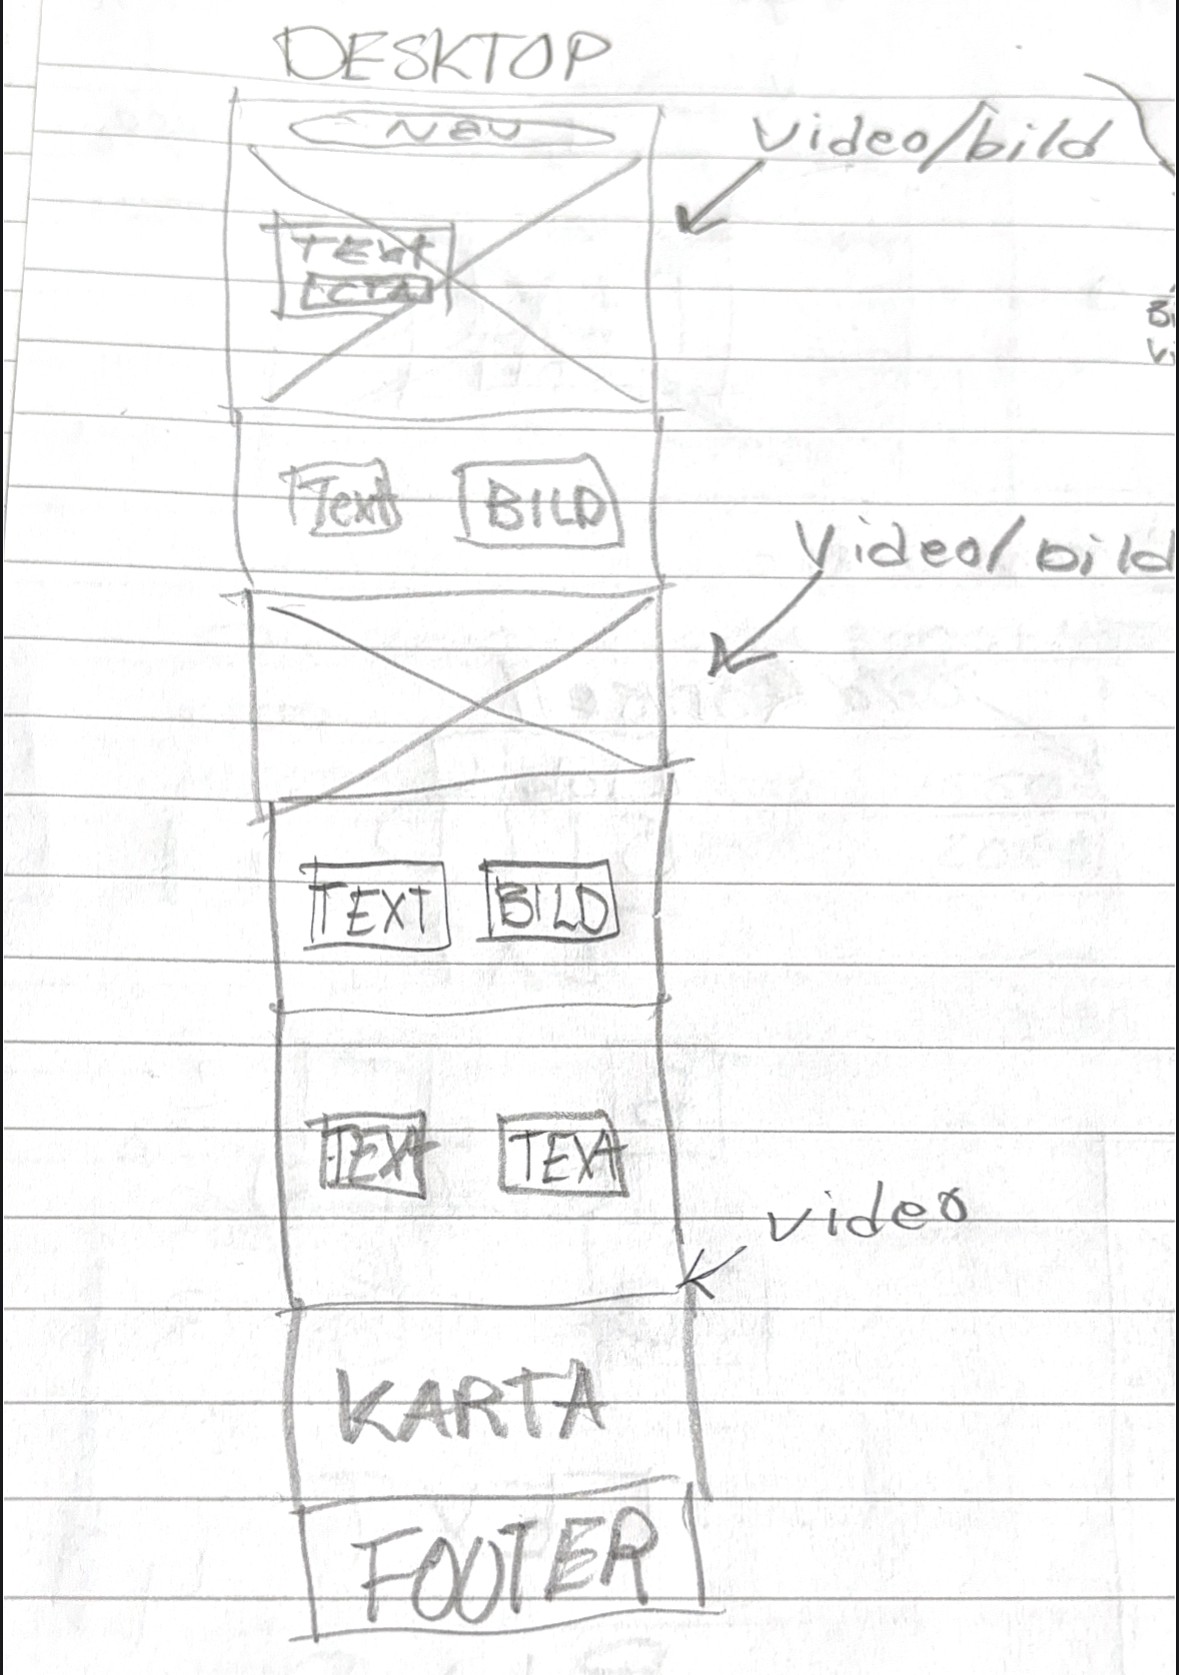 DESKTOP
NAV
Video/bild
TEXT
CTA
Text BILD
Video/bild
TEXT BILD
TEXT TEXT
video
KARTA
FOOTER